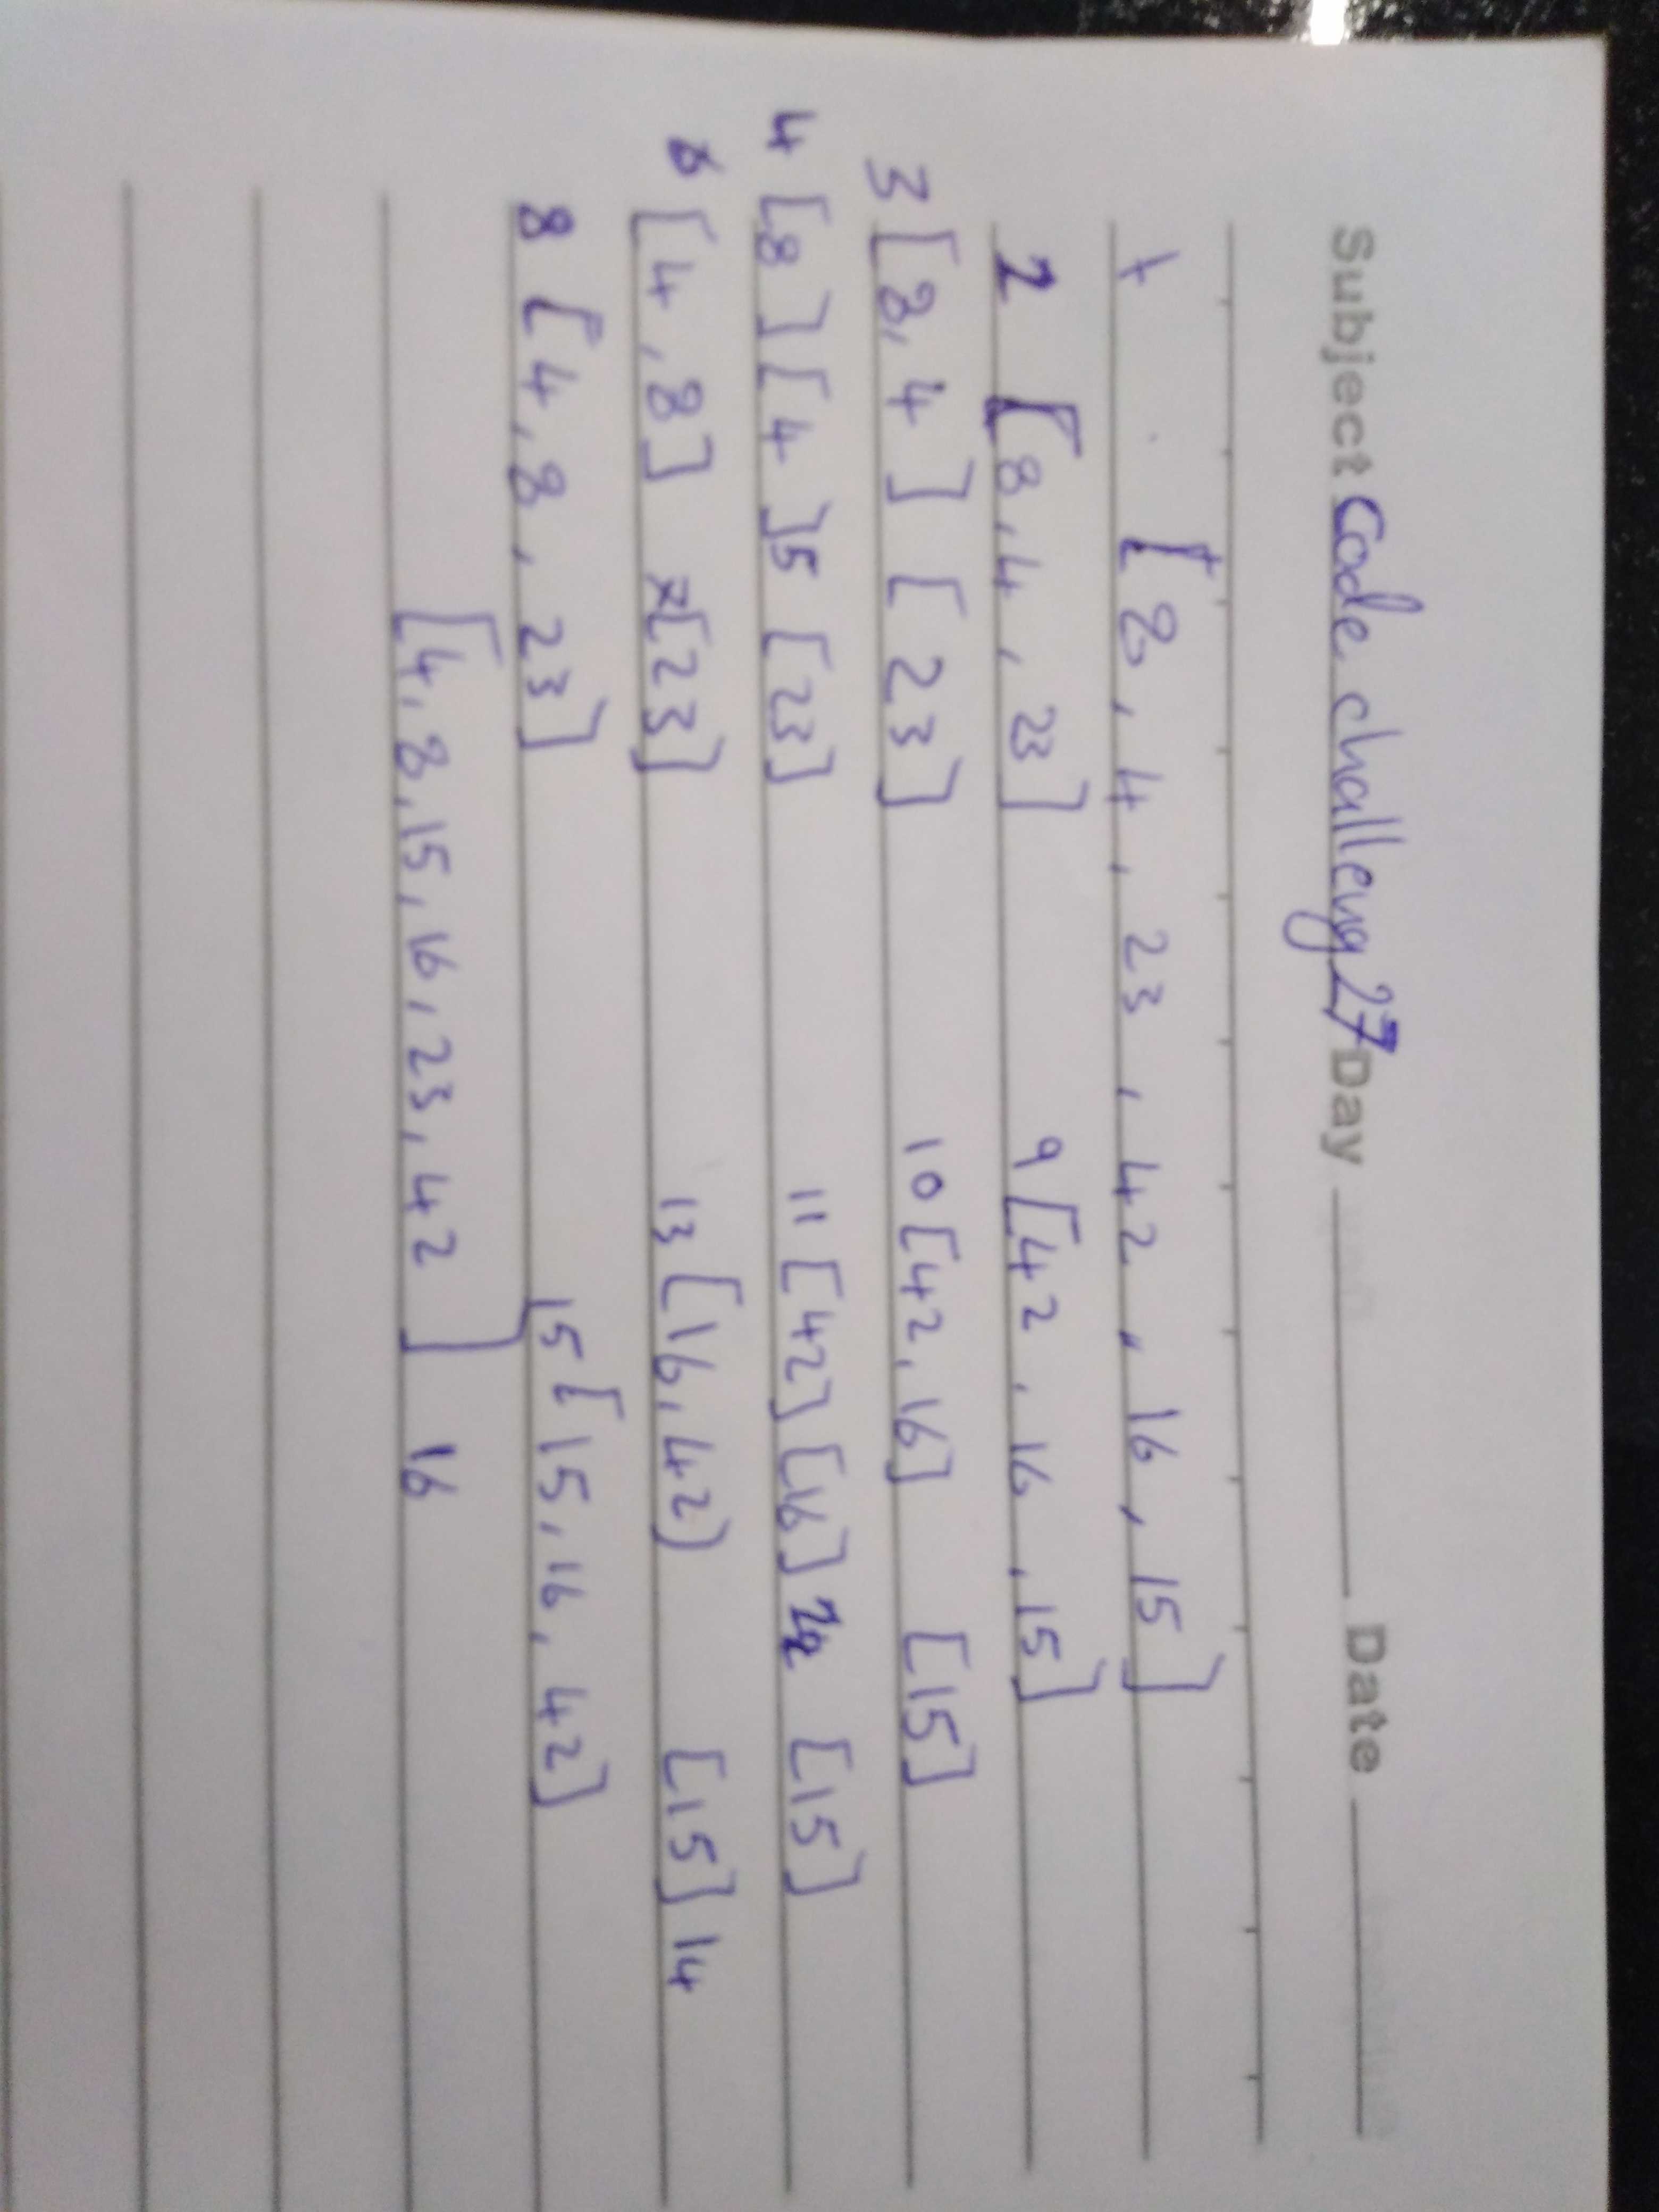 Subject Code challeng 27 Day Date
1 [8, 4, 23, 42, 16, 15]
2 [8, 4, 23] 9 [42, 16, 15]
3 [8, 4] [23] 10 [42, 16] [15]
4 [8] [4] 5 [23] 11 [42] [16] 12 [15]
6 [4, 8] 7 [23] 13 [16, 42] [15] 14
8 [4, 8, 23] 15 [15, 16, 42]
[4, 8, 15, 16, 23, 42] 16